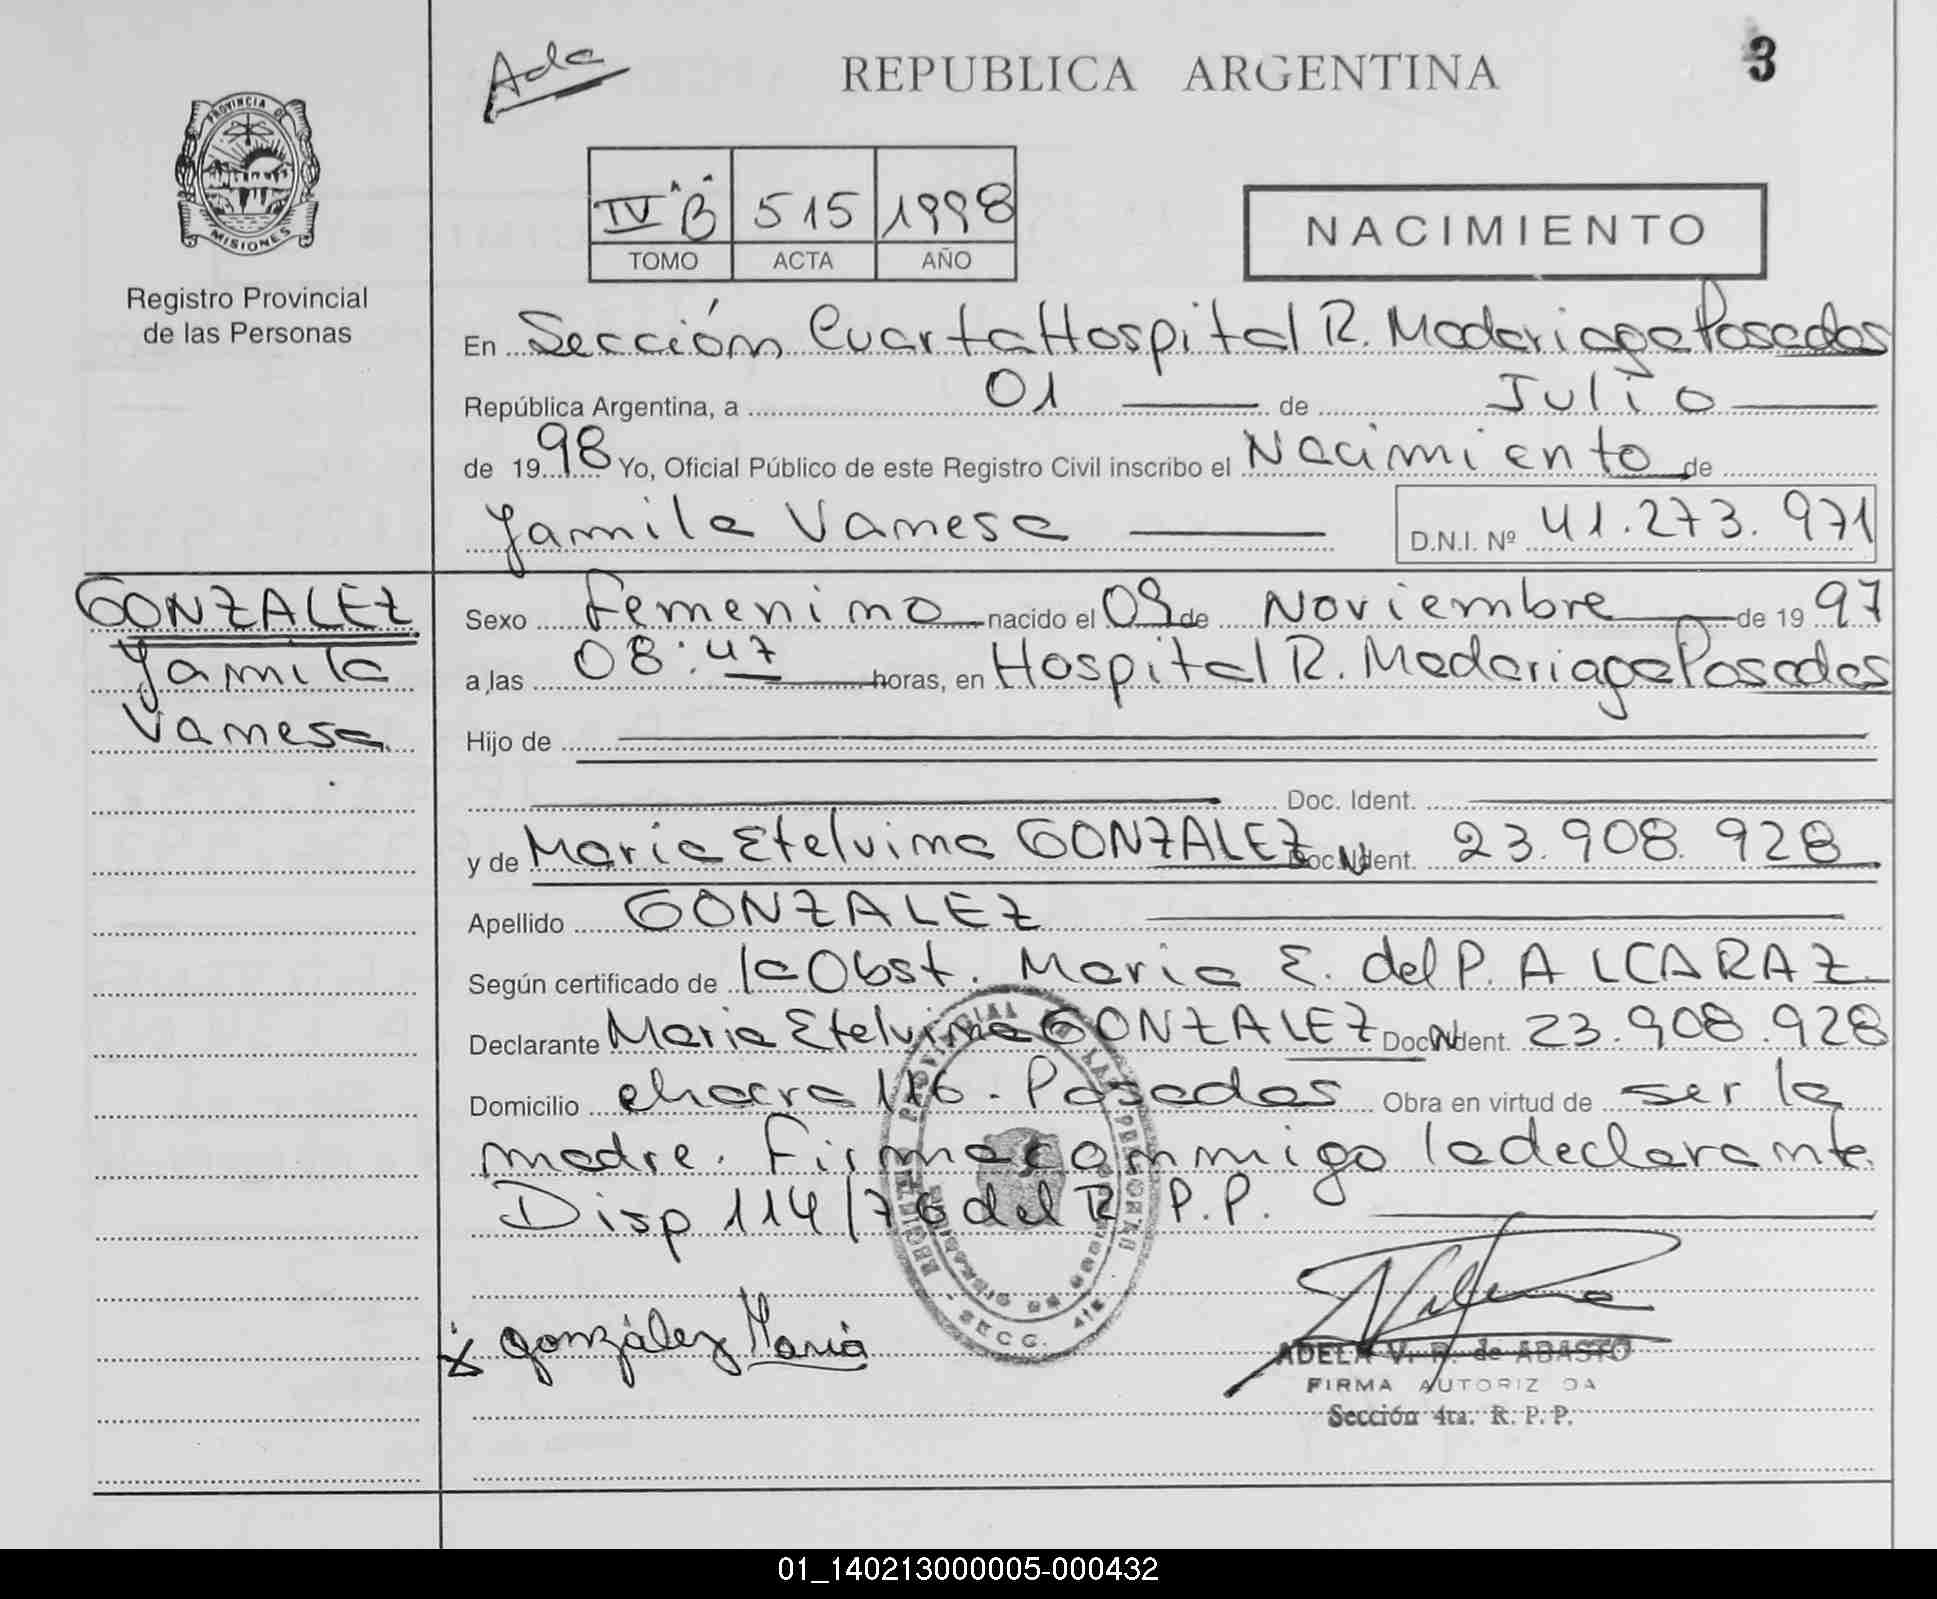 Ada
REPUBLICA ARGENTINA
3
PROVINCIA DE
MISIONES
Registro Provincial
de las Personas
IV "B" 515 1998
TOMO ACTA AÑO
NACIMIENTO
En Sección Cuarta Hospital R. Madariaga Posadas
República Argentina, a 01 de Julio
de 1998 Yo, Oficial Público de este Registro Civil inscribo el Nacimiento de
Yamila Vanesa D.N.I. Nº 41.273.971
GONZALEZ
Yamila
Vanesa
Sexo Femenino nacido el 09 de Noviembre de 1997
a las 08:47 horas, en Hospital R. Madariaga Posadas
Hijo de
Doc. Ident.
y de Maria Etelvina GONZALEZ Doc. Ident. 23.908.928
Apellido GONZALEZ
Según certificado de la Obst. Maria E. del P. ALCARAZ
Declarante Maria Etelvina GONZALEZ Doc. Ident. 23.908.928
Domicilio chacra 116. Posadas Obra en virtud de ser la
madre. Firma conmigo la declarante.
Disp 114/76 del R.P.P.
SECC. 4ta.
x González María
ADELA V. R. de ABASTO
FIRMA AUTORIZADA
Sección 4ta. R. P. P.
01_140213000005-000432